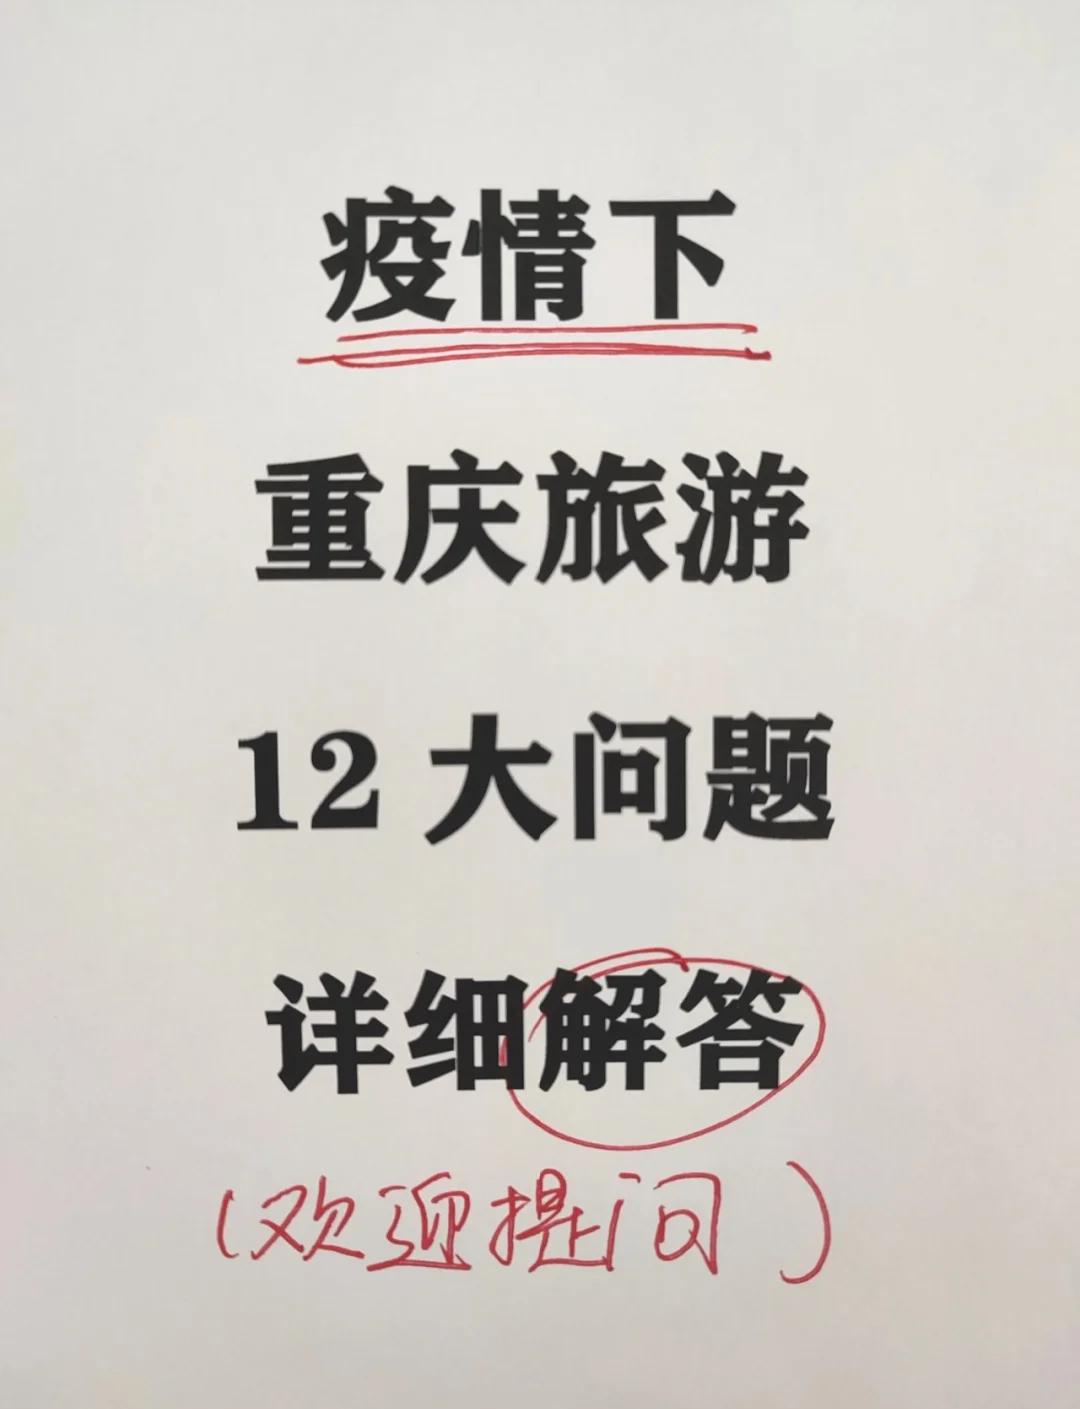 疫情下
重庆旅游
12 大问题
详细解答
(欢迎提问)